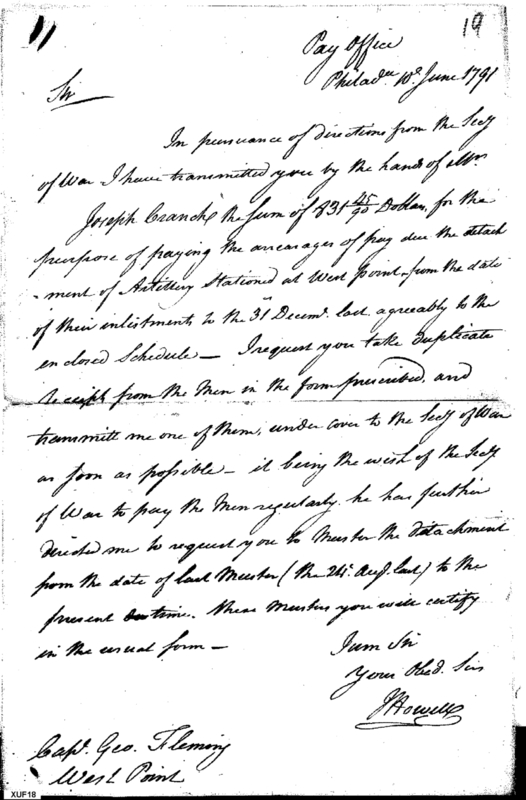 19
Pay Office
Philada. 10th June 1791
Sir
In pursuance of directions from the Secy
of War I have transmitted you by the hands of Mr
Joseph Cranch the Sum of 831 45/90 Dollars, for the
purpose of paying the arrearages of pay due the detach
-ment of Artillery Stationed at West Point from the date
of their enlistments to the 31 Decemr. last agreeably to the
enclosed Schedule — I request you take duplicate
receipts from the Men in the form prescribed, and
transmitt me one of them, under cover to the Secy of War
as soon as possible — it being the wish of the Secy
of War to pay the Men regularly he has further
directed me to request you to Muster the detachment
from the date of last Muster (the 24 Augt. last) to the
present time. these Musters you will certify
in the usual form —
I am Sir
Your Obed. Serv
J Howell
Capt. Geo. Fleming
West Point
XUF18